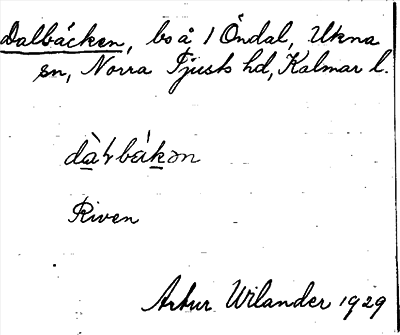 Dalbäcken, bs å 1 Öndal, Ukna
sn, Norra Tjusts hd, Kalmar l.
dàɫbäkən
Riven
Artur Wilander 1929